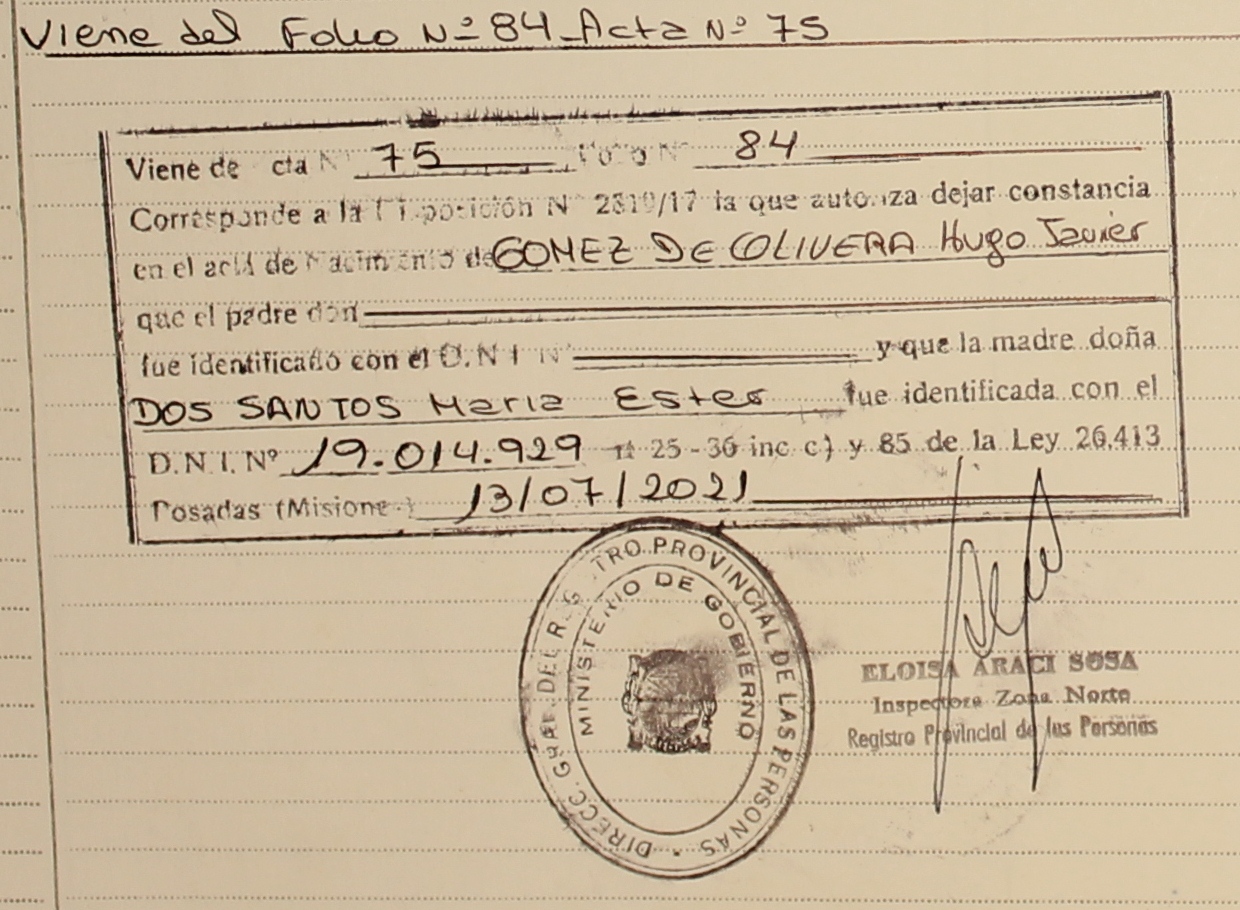 Viene del Folio Nº 84 Acta Nº 75
Viene de cta N° 75 Folio N° 84
Corresponde a la posición N° 2819/17 la que autoriza dejar constancia
en el acta de Nacimiento de GOMEZ DE OLIVERA Hugo Javier
que el padre don
fue identificado con el D.N.I N° y que la madre doña
DOS SANTOS Maria Ester fue identificada con el
D.N.I. Nº 19.014.929 rt 25-36 inc c) y 85 de la Ley 26.413
Posadas (Misione ) 13/07/2021
DIRECC. GRAL. DEL R G TRO PROVINCIAL DE LAS PERSONAS
MINISTERIO DE GOBIERNO
ELOISA ARACI SOSA
Inspectora Zona Norte
Registro Provincial de las Personas